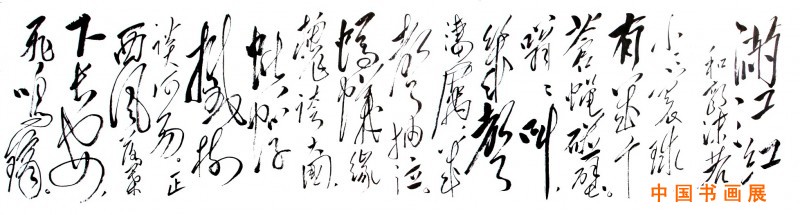 滿江红
和郭沫若
小小寰球
有幾个
苍蝇碰壁。
嗡嗡叫
幾聲
凄厉，幾
声抽泣
蚂蚁缘
槐誇大國，
蚍蜉
撼树
谈何易。正
西风落葉
下长安，
飞鸣镝。
中国书画展